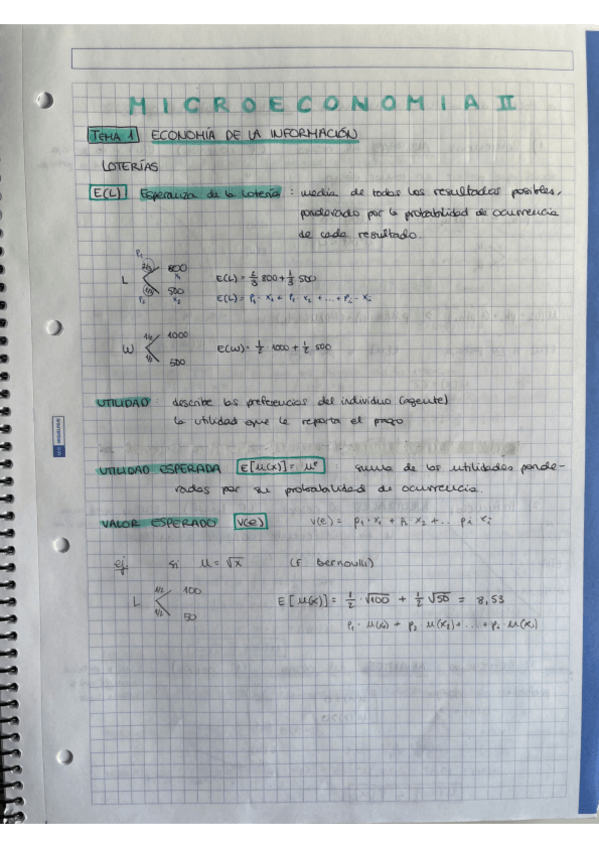 MICROECONOMIA II
TEMA 1 ECONOMÍA DE LA INFORMACIÓN
LOTERÍAS
E(L) Esperanza de la lotería : media de todos los resultados posibles,
ponderado por la probabilidad de ocurrencia
de cada resultado.
P₁
2/3 800
x₁
L E(L) = 2/3 800 + 1/3 500
1/3 500
P₂ x₂ E(L) = P₁ · x₁ + P₁ · x₂ + ... + Pᵢ · xᵢ
1/2 1000
W E(W) = 1/2 1000 + 1/2 500
1/2 500
UTILIDAD : describe las preferencias del individuo (agente)
la utilidad que le reporta el pago
UTILIDAD ESPERADA E[u(x)] = uᵉ : suma de las utilidades ponde-
radas por su probabilidad de ocurrencia.
VALOR ESPERADO V(e) V(e) = P₁ · x₁ + P₂ x₂ + ... Pᵢ xᵢ
ej si u = √x (f bernoulli)
1/2 100
L E[u(x)] = 1/2 · √100 + 1/2 √50 = 8,53
1/2 50
P₁ · u(x) + P₂ u(x₁) + ... + Pᵢ · u(xᵢ)